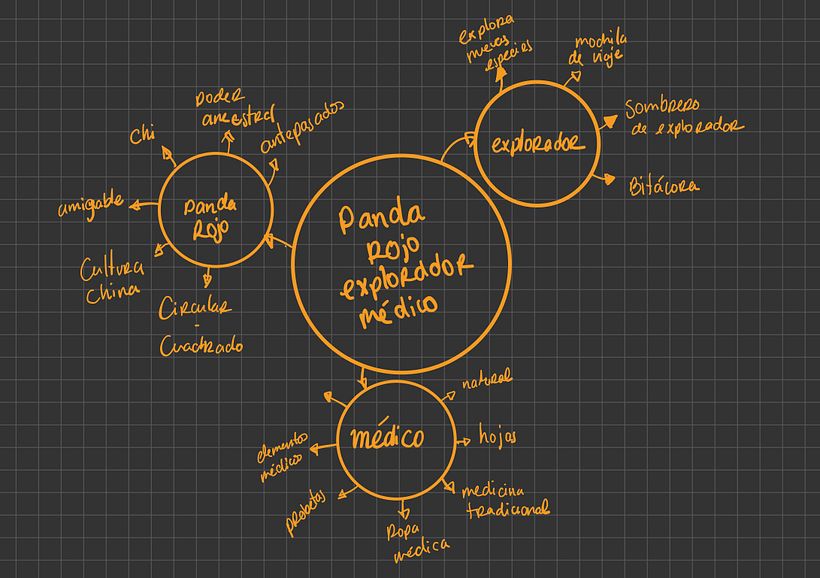 Panda
Rojo
explorador
médico
explorador
explora
nuevas
especies
mochila
de viaje
Sombrero
de explorador
Bitácora
Panda
Rojo
Chi
Poder
ancestral
antepasados
amigable
Cultura
China
Circular
-
Cuadrado
médico
natural
hojas
medicina
tradicional
Ropa
médica
probetas
elementos
médicos